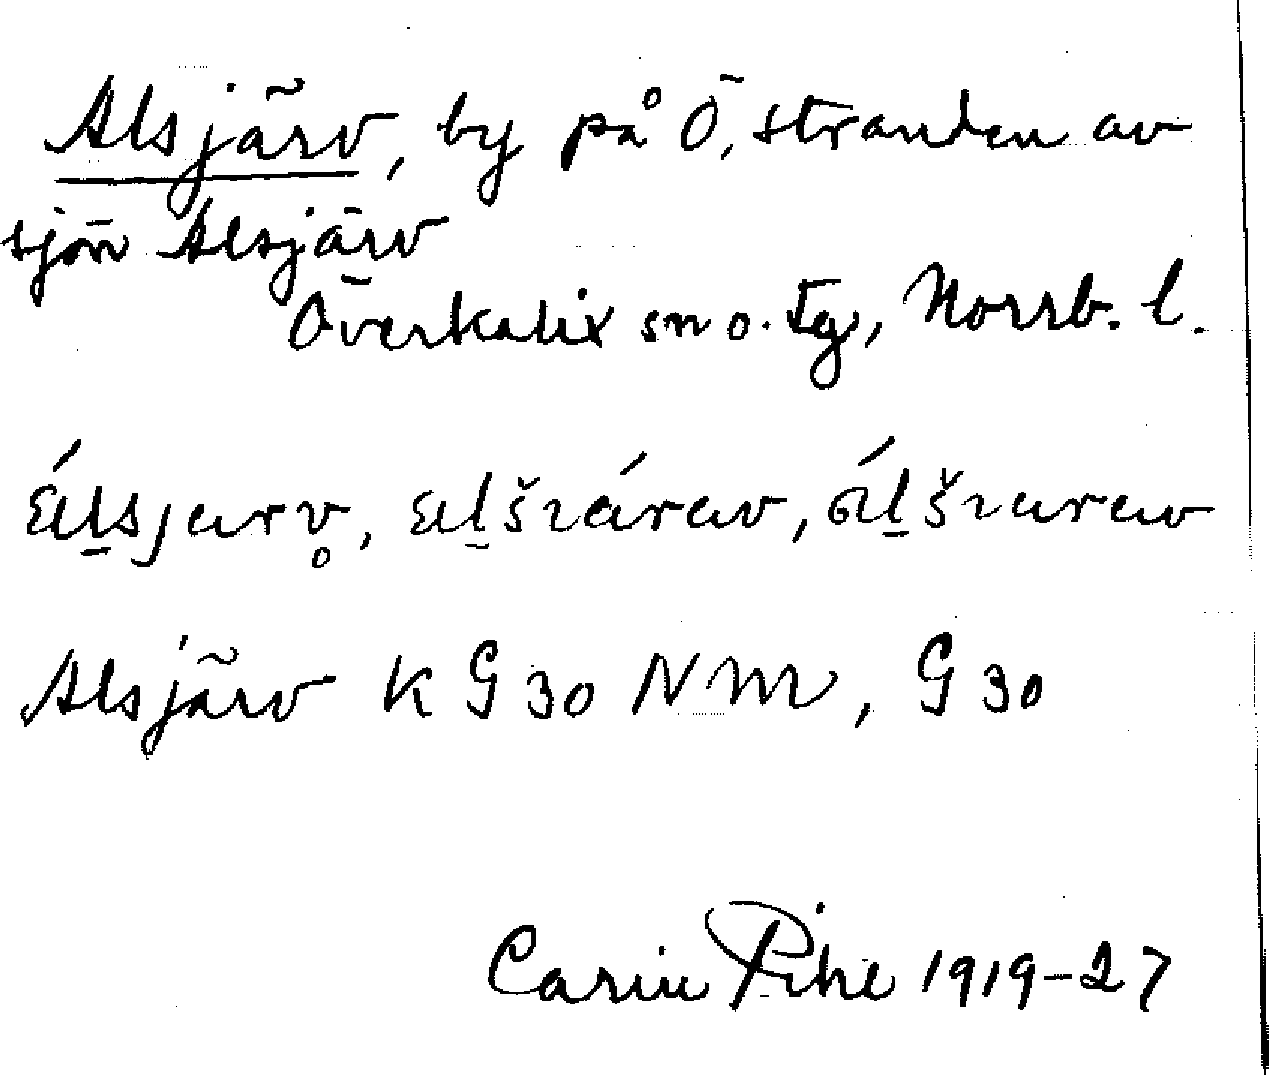 Alsjärv, by på Ö, stranden av
sjön Alsjärv
Överkalix sn o. tg, Norrb. l.
Alsjärv K G 30 NM, G 30
Carin Pihl 1919-27